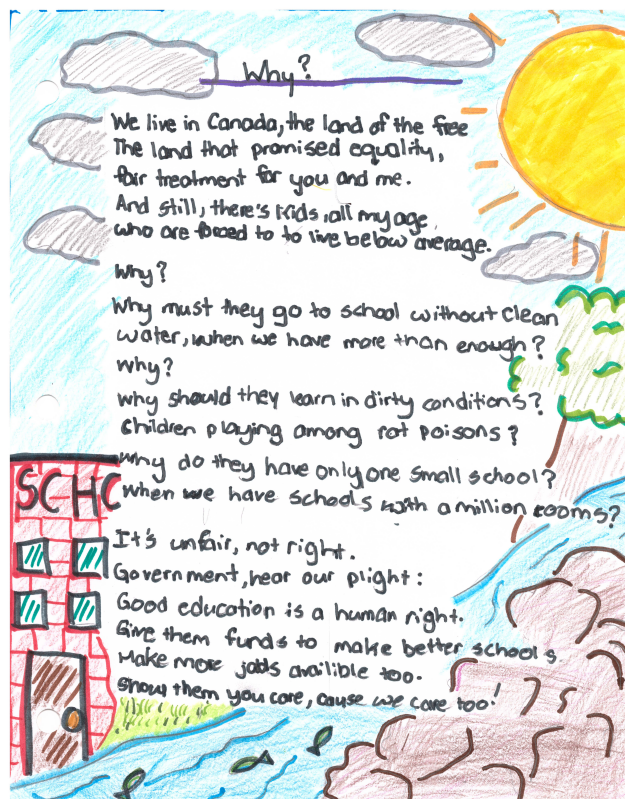 Why?
We live in Canada, the land of the free
The land that promised equality,
fair treatment for you and me.
And still, there's kids, all my age,
who are forced to to live below average.
Why?
Why must they go to school without clean
water, when we have more than enough?
Why?
why should they learn in dirty conditions?
Children playing among rat poisons?
Why do they have only one small school?
When we have schools with a million rooms?
SCHO
It's unfair, not right.
Government, hear our plight:
Good education is a human right.
Give them funds to make better schools.
Make more jobs availible too.
Show them you care, cause we care too!